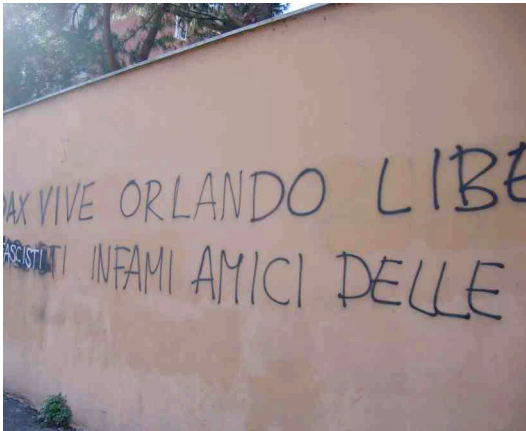 DAX VIVE ORLANDO LIBE
FASCISTI TI INFAMI AMICI DELLE